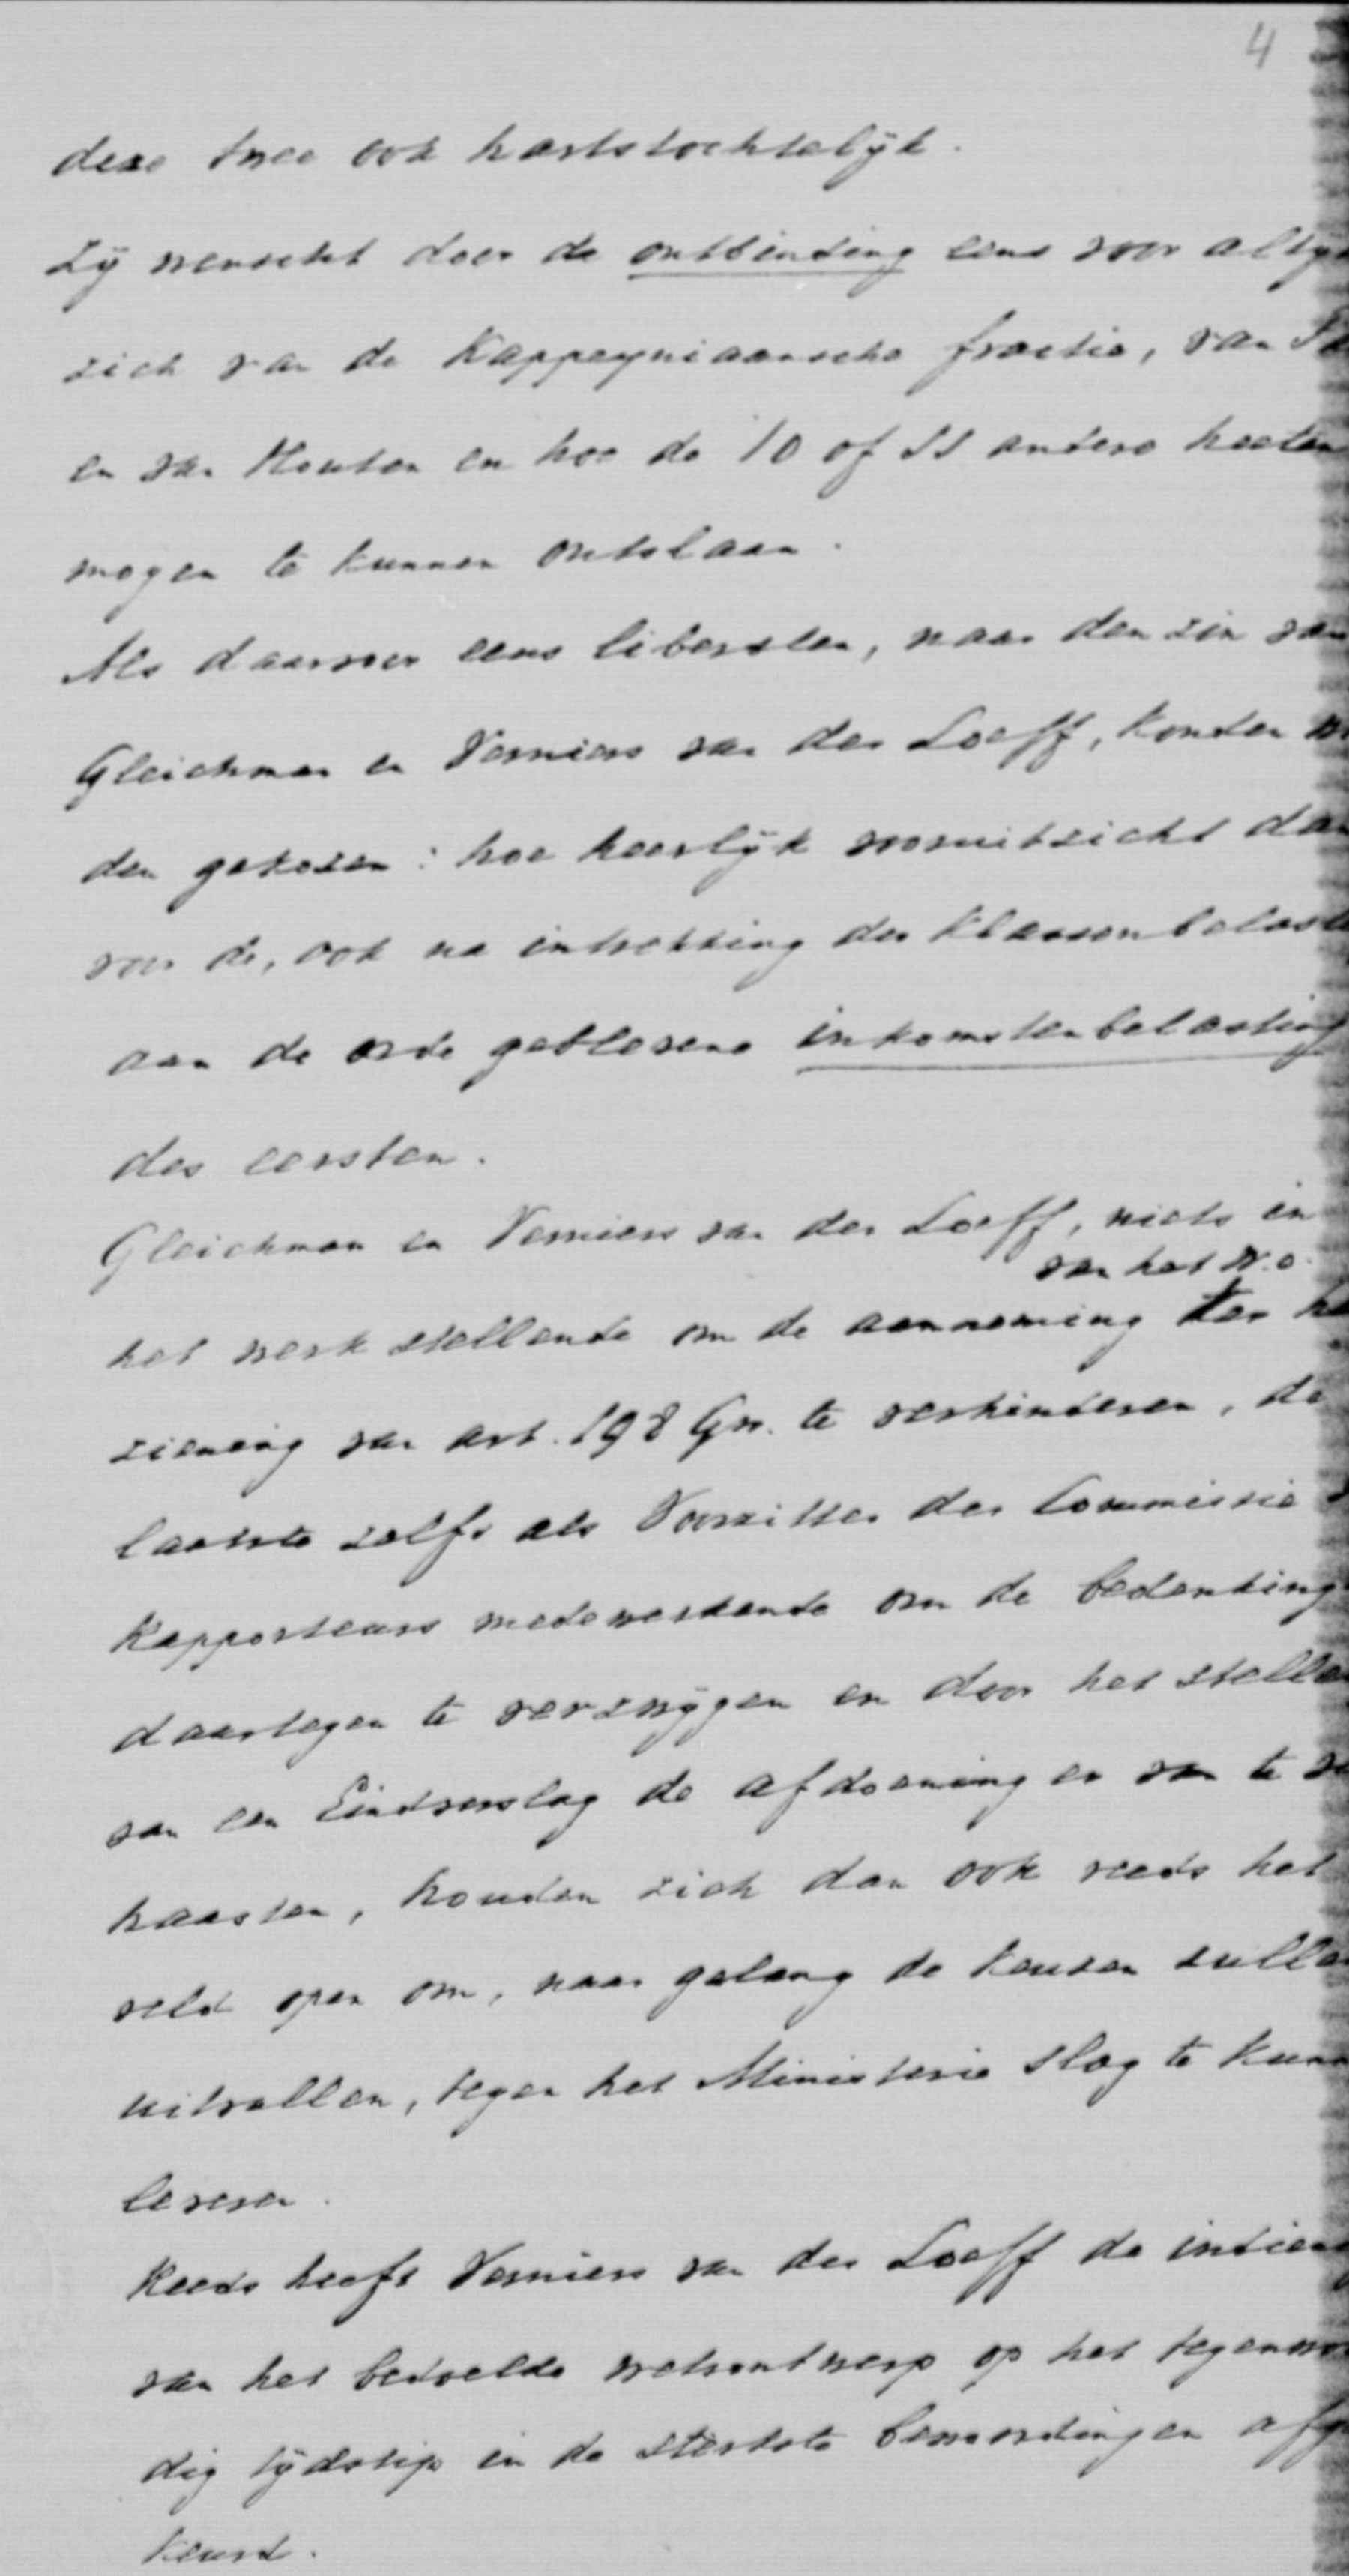 4
deze twee ook hartstochtelijk.
Zij wenscht door de ontbinding eens voor altij
zich van de Kappeyniaansche fractie, van
en van Houten en hoe de 10 of 11 andere heeten
mogen te kunnen ontslaan.
Als daarvoor eens liberalen, naar den zin van
Gleichman en Verniers van der Loeff, konden wor
den gekozen: hoe heerlijk vooruitzicht dan
voor de, ook na intrekking der klassenbelast
aan de orde geblevene inkomstenbelasting
des eersten.
Gleichman en Verniers van der Loeff, niets in
van het W.O.
het werk stellende om de aanneming der he
ziening van art. 198 Gw. te verhinderen, de
laatste zelfs als Voorzitter der Commissie
Rapporteurs medewerkende om de bedenking
daartegen te verzwijgen en door het stellen
van een Eindverslag de afdoening er van te ver
haasten, houden zich dan ook reeds het
veld open om, naar gelang de keuzen zullen
uitvallen, tegen het Ministerie slag te kunn
leveren.
Reeds heeft Verniers van der Loeff de indien
van het bedoelde wetsontwerp op het tegenwoor
dig tijdstip in de sterkste bewoordingen afge
keurd.